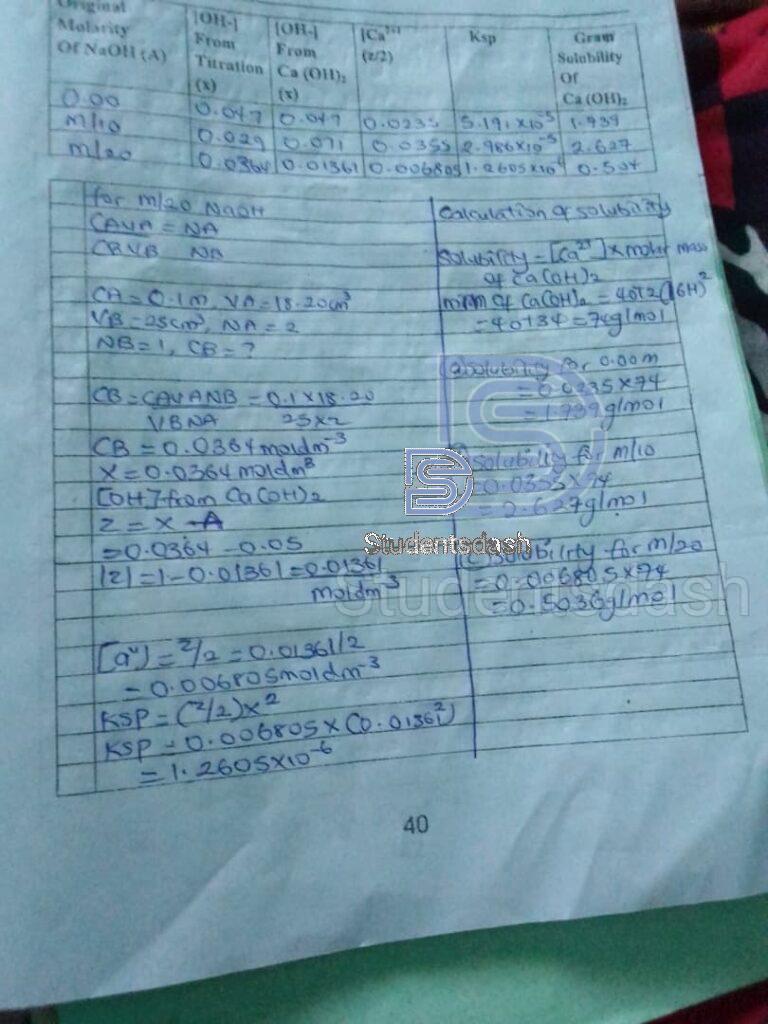 Original Molarity Of NaOH (A) | [OH-] From Titration (x) | [OH-] From Ca (OH)₂ (x) | [Ca²⁺] (z/2) | Ksp | Gram Solubility Of Ca (OH)₂
0.00 | 0.047 | 0.047 | 0.0235 | 5.191×10⁻⁵ | 1.739
m/10 | 0.029 | 0.071 | 0.0355 | 2.986×10⁻⁵ | 2.627
m/20 | 0.0364 | 0.01361 | 0.006805 | 1.2605×10⁻⁶ | 0.504
for m/20 NaOH
CAVA = NA
CBVB NA
CA = 0.1m, VA = 18.20cm³
VB = 25cm³, NA = 2
NB = 1, CB = ?
CB = CAVANB = 0.1 × 18.20
VBNA 25×2
CB = 0.0364 moldm⁻³
X = 0.0364 moldm³
[OH] from Ca(OH)₂
Z = X - A
= 0.0364 0.05
|Z| = 1-0.01361 = 0.01361
moldm⁻³
= ²/2 = 0.01361/2
= 0.006805moldm⁻³
KSP = (²/2)X²
KSP = 0.006805 × (0.01361²)
= 1.2605×10⁻⁶
Calculation of solubility
Solubility = [Ca²⁺] × molar mass
of Ca(OH)₂
= 40+34 = 74g/mol
solubility for 0.00m
= 0.0235×74
= 1.739g/mol
solubility for m/10
= 0.0355×74
= 2.627g/mol
solubility for m/20
= 0.006805×74
= 0.5036g/mol
Studentsdash
Studentsdash
40